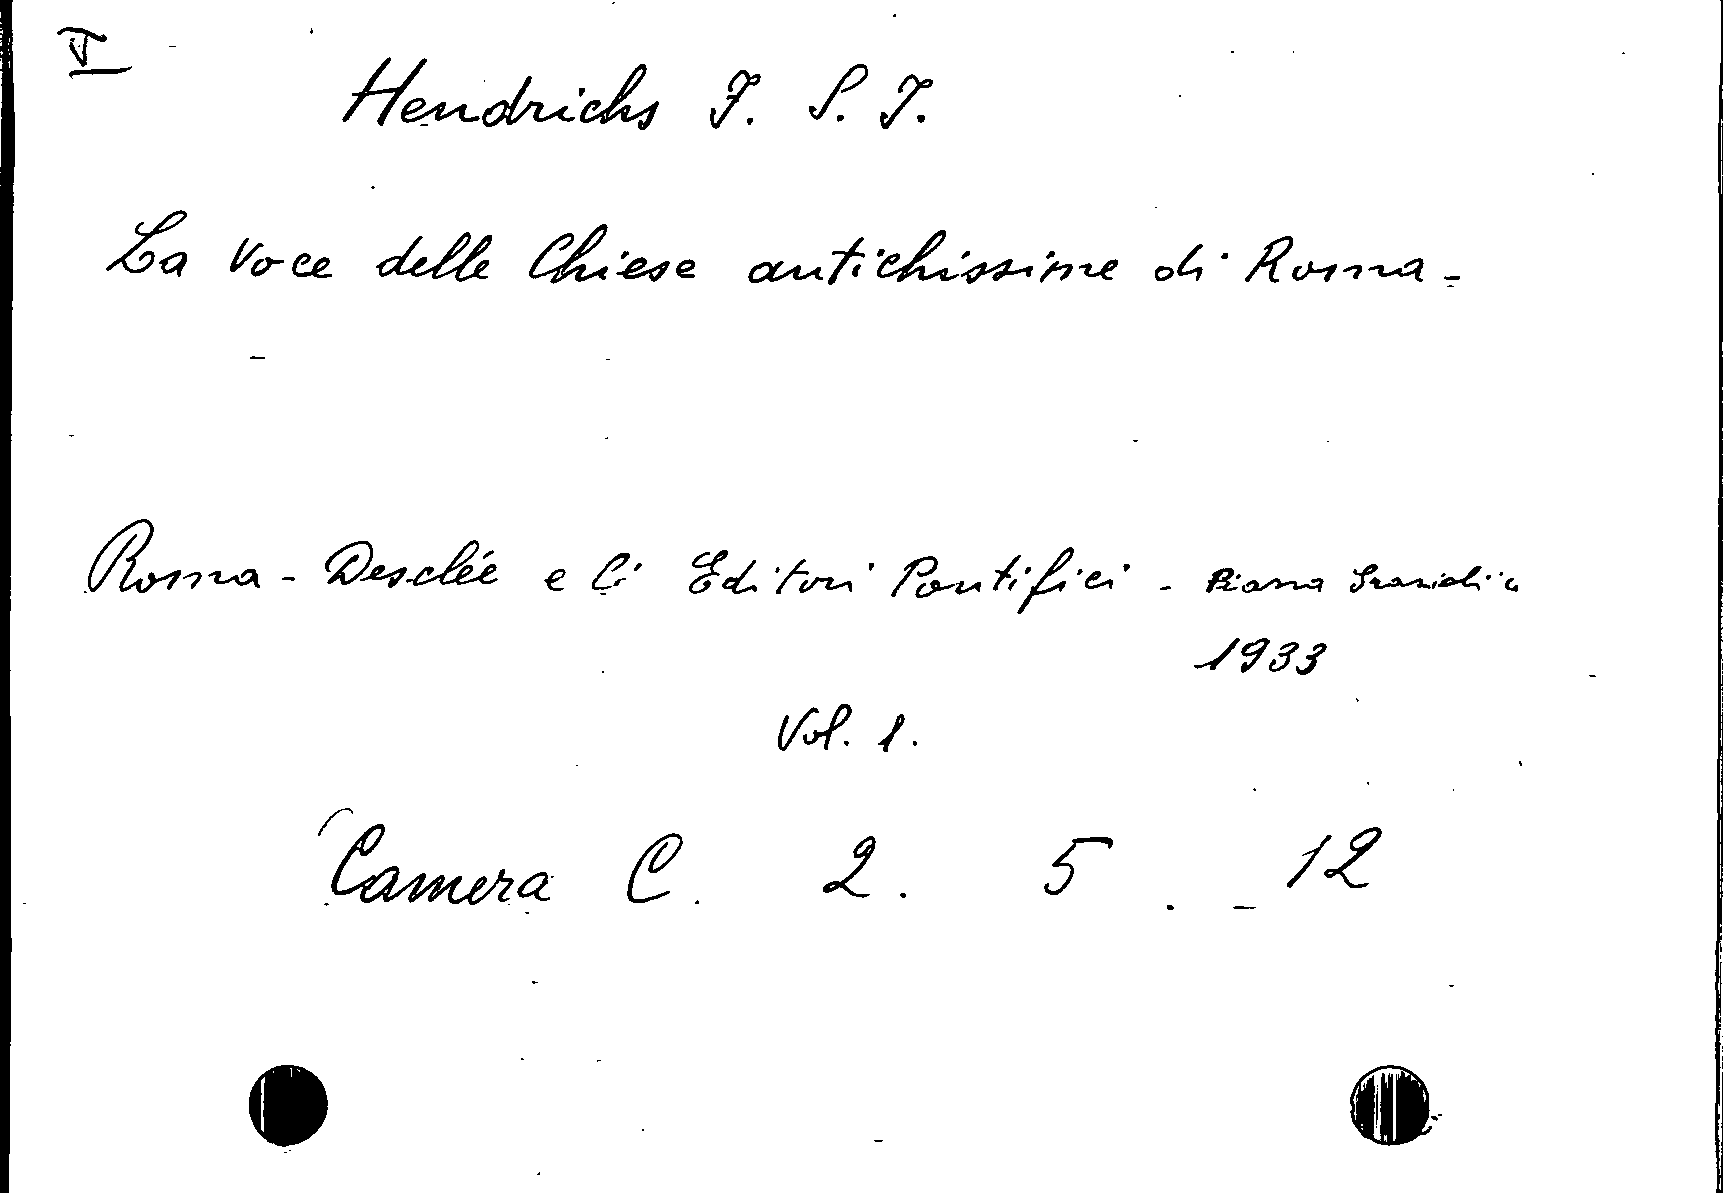 V
Hendrichs F. S. J.
La Voce delle Chiese antichissime di Roma -
Roma - Desclée e Ci Editori Pontifici - Piazza
1933
Vol. 1.
Camera C. 2. 5. - 12